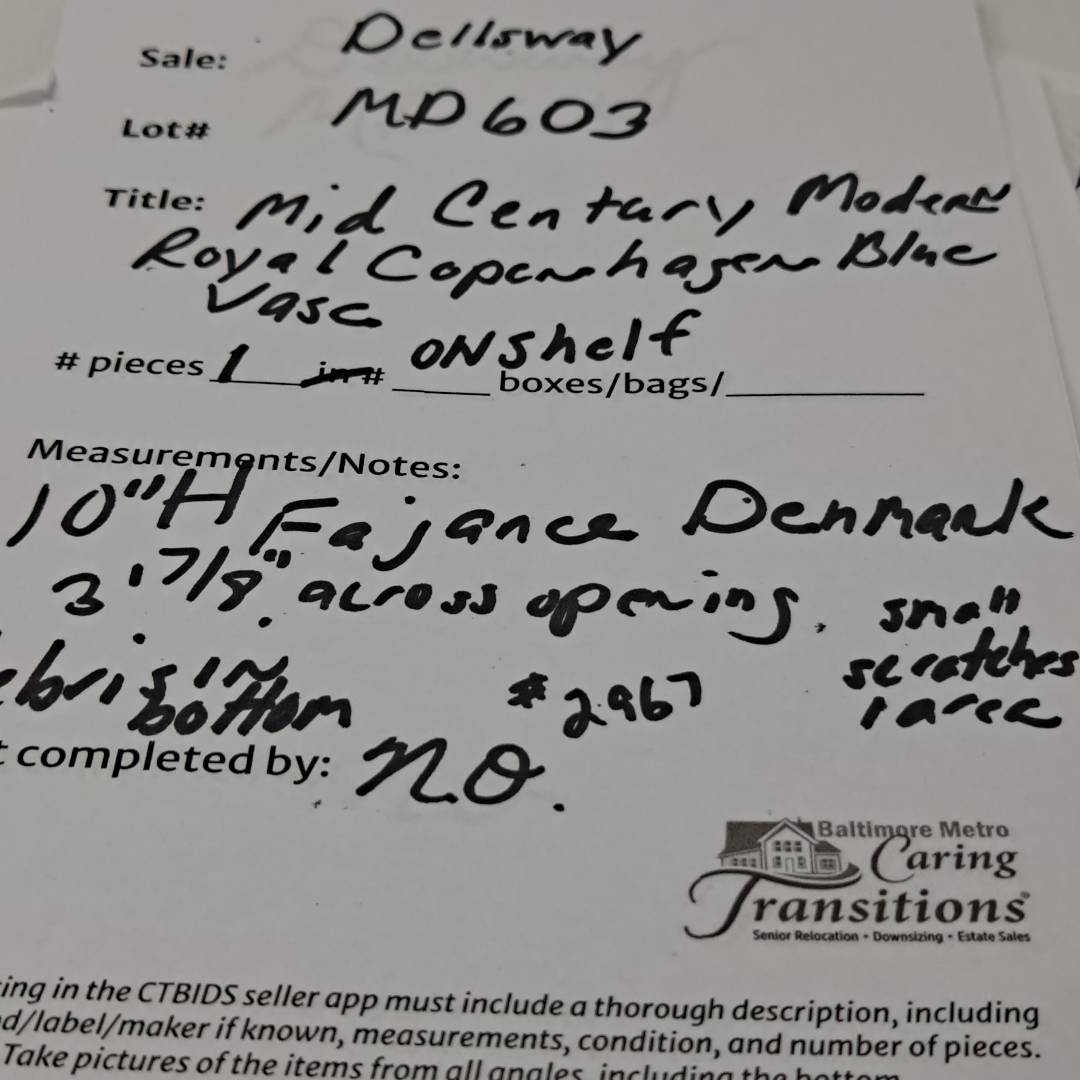 Sale: Dellsway
Lot# MD603
Title: Mid Century Modern
Royal Copenhagen Blue
Vase
on shelf
# pieces 1 in # boxes/bags/
Measurements/Notes:
10"H Fajance Denmark
3 '7/8" across opening. small
scratches
ebris in
bottom
#2967
1 area
t completed by: N.O.
Baltimore Metro
Caring
Transitions
Senior Relocation • Downsizing • Estate Sales
ing in the CTBIDS seller app must include a thorough description, including
d/label/maker if known, measurements, condition, and number of pieces.
Take pictures of the items from all angles, including the bottom